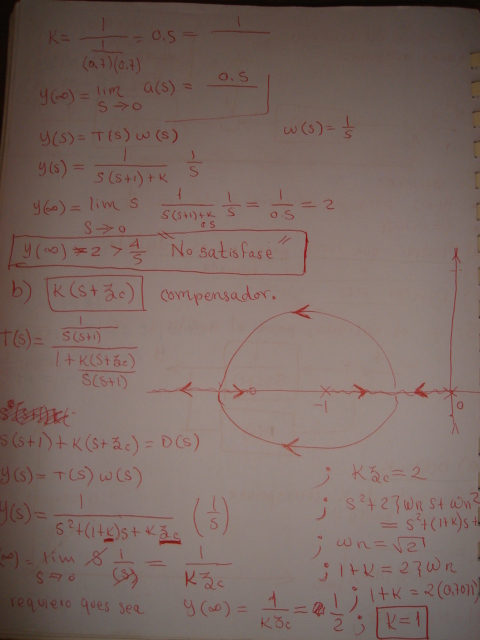 K = 1 / (1 / (0.7)(0.7)) = 0.5 = 1
y(∞) = lim s→0 G(s) = 0.5
y(s) = T(s) w(s)    w(s) = 1/s
y(s) = 1 / (s(s+1)+K) 1/s
y(∞) = lim s→0 s 1 / (s(s+1)+K) 1/s = 1/0.5 = 2
0.5
y(∞) = 2 > 4/5 "No satisfase"
b) K(s+zc) compensador.
T(s) = (1 / s(s+1)) / (1 + K(s+zc) / s(s+1))
-1 0
s(s+1) + K(s+zc) = D(s)
y(s) = T(s) w(s)
y(s) = 1 / (s²+(1+K)s+Kzc) (1/s)
∞) = lim s→0 s 1/(s) = 1/Kzc
requiero que sea y(∞) = 1/Kzc = 1/2
; Kzc = 2
; s²+2ζωn s+ωn²
= s²+(1+K)s+
; ωn = √2
; 1+K = 2ζωn
; 1+K = 2(0.707)
; K=1